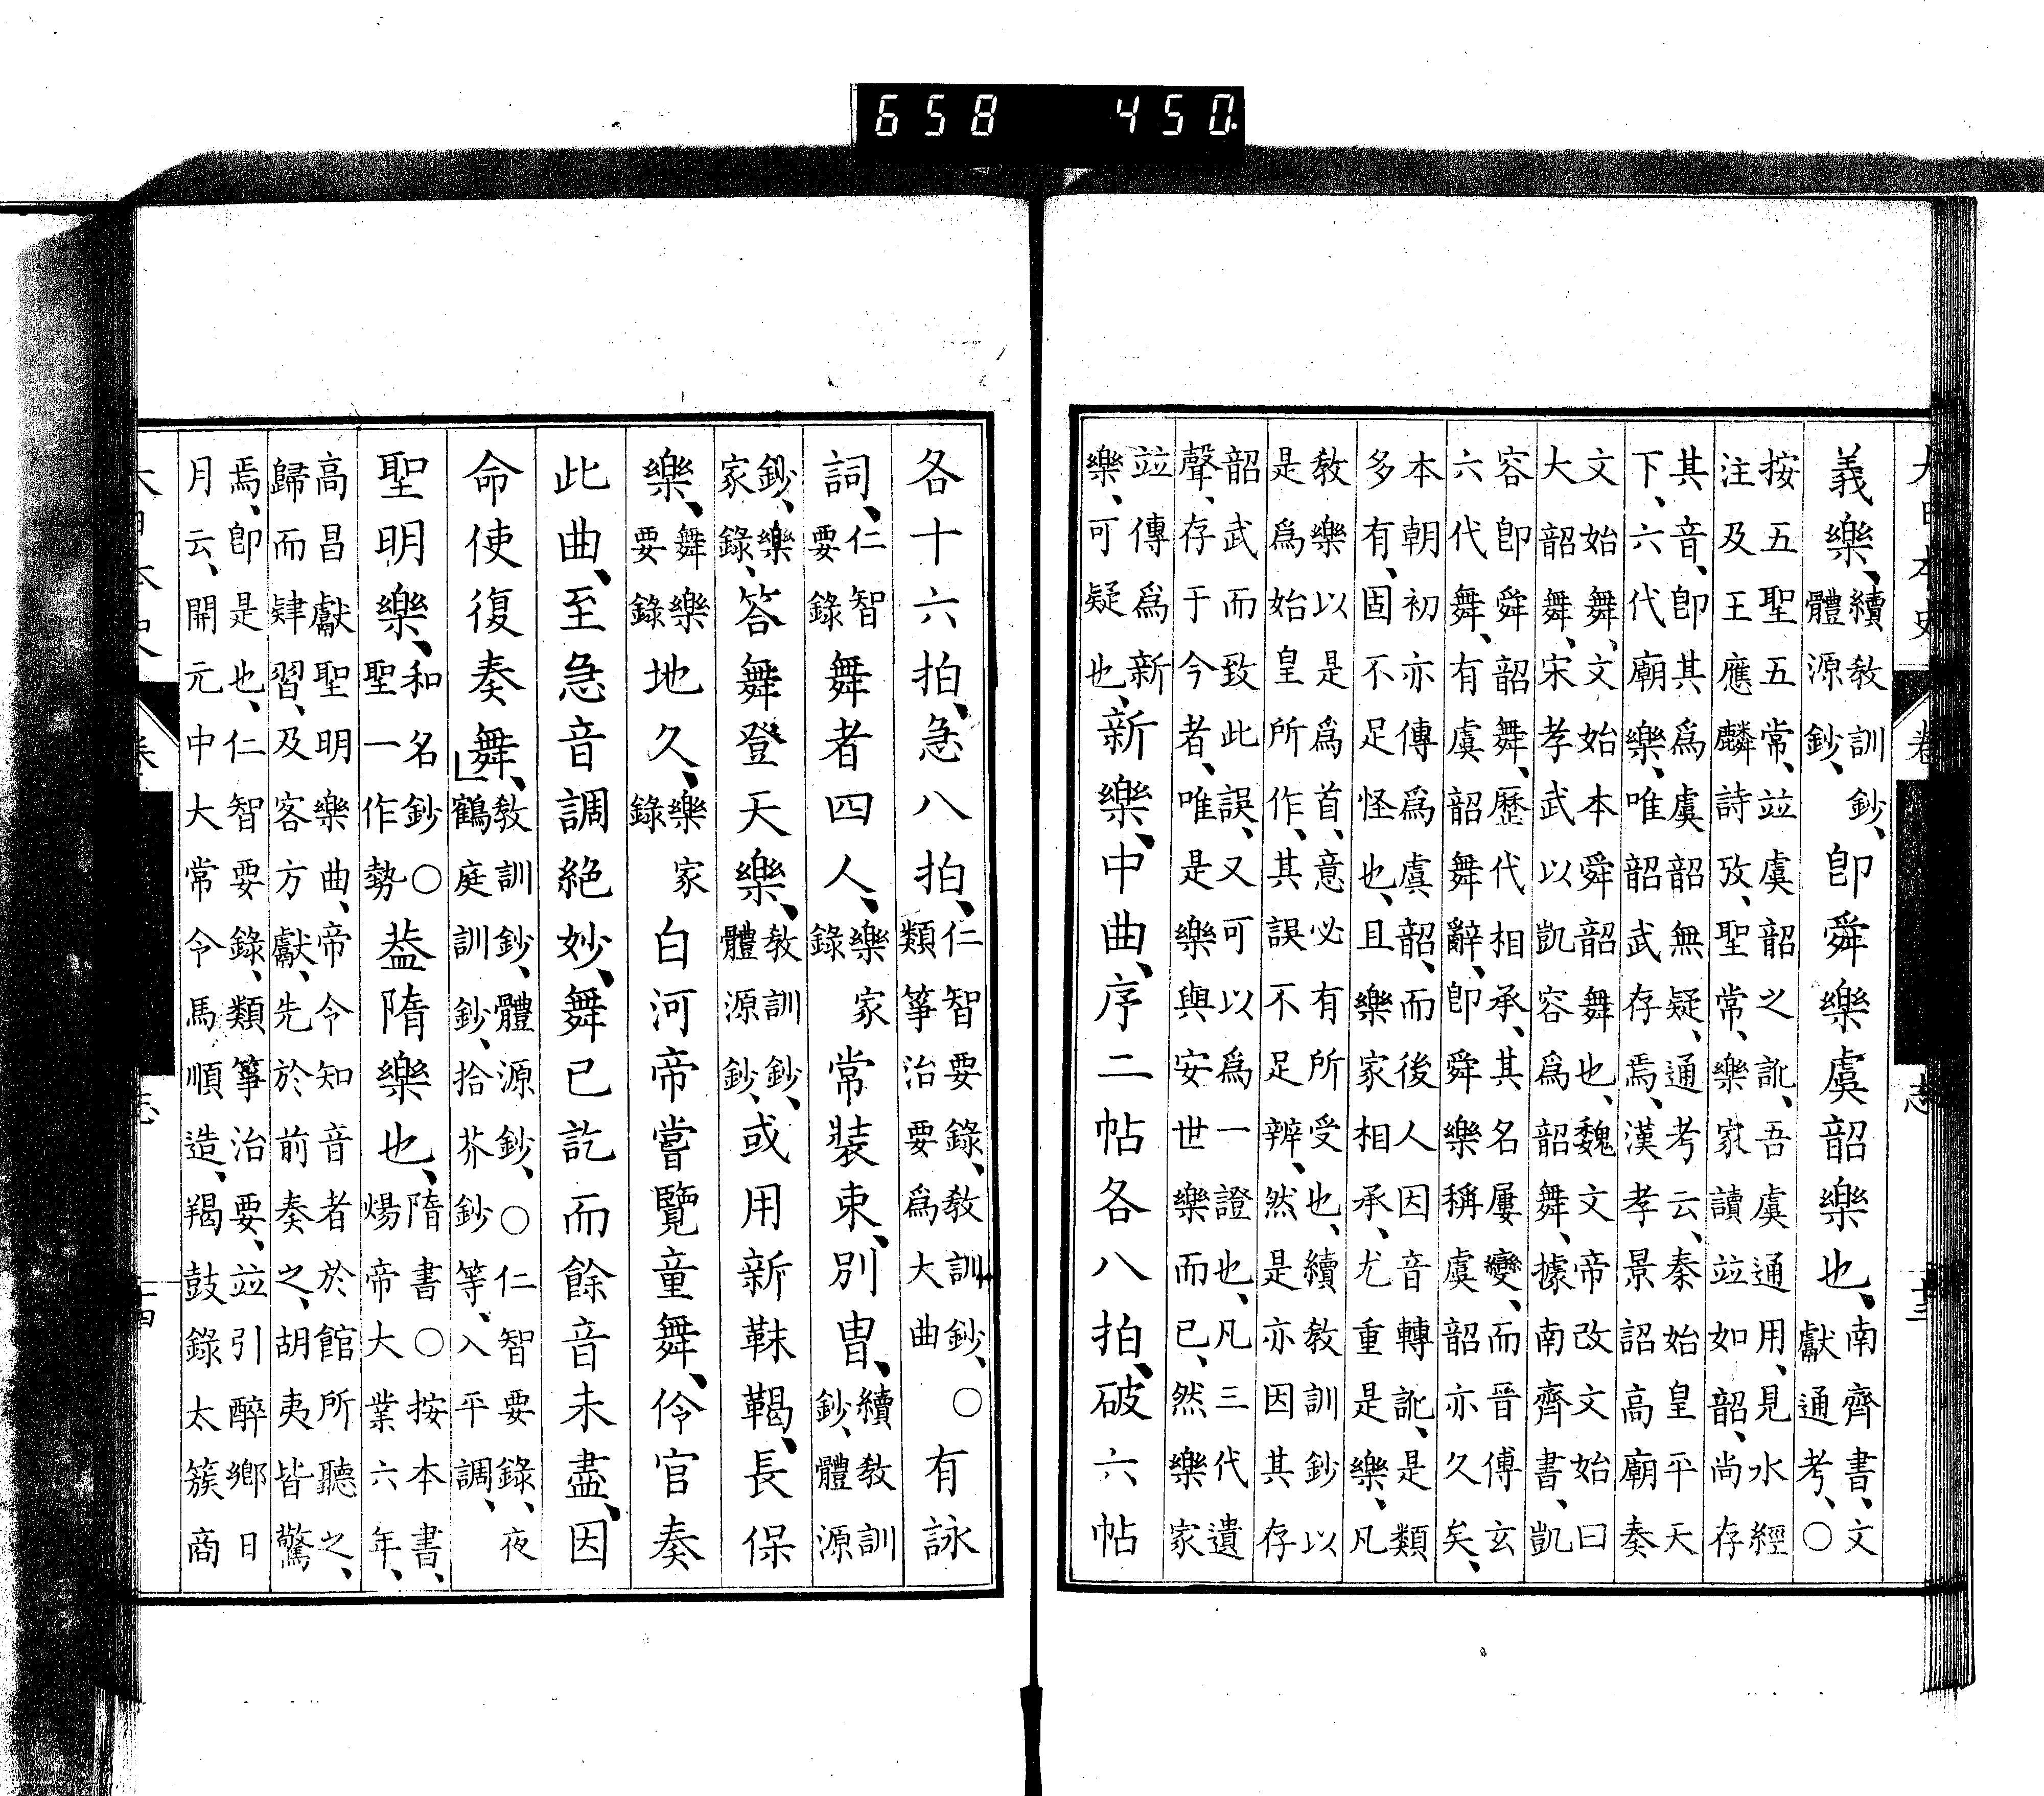 大日本史 卷 志 十三
義樂、續教訓鈔、體源鈔、即舜樂虞韶樂也、南齊書、文獻通考、○
按五聖五常、竝虞韶之訛、吾虞通用、見水經
注及王應麟詩攷、聖常、樂家讀竝如韶、尚存
其音、即其爲虞韶無疑、通考云、秦始皇平天
下、六代廟樂、唯韶武存焉、漢孝景詔高廟奏
文始舞、文始本舜韶舞也、魏文帝改文始曰
大韶舞、宋孝武以凱容爲韶舞、據南齊書、凱
容即舜韶舞、歷代相承、其名屢變、而晉傅玄
六代舞、有虞韶舞辭、即舜樂稱虞韶亦久矣、
本朝初亦傳爲虞韶、而後人因音轉訛、是類
多有、固不足怪也、且樂家相承、尤重是樂、凡
教樂以是爲首、意必有所受也、續教訓鈔以
是爲始皇所作、其誤不足辨、然是亦因其存
韶武而致此誤、又可以爲一證也、凡三代遺
聲、存于今者、唯是樂與安世樂而已、然樂家
竝傳爲新樂、可疑也、新樂、中曲、序二帖各八拍、破六帖
各十六拍、急八拍、仁智要錄、教訓鈔、○類箏治要爲大曲有詠
詞、仁智要錄舞者四人、樂家錄常裝束、別冑、續教訓鈔、體源
鈔、樂家錄、答舞登天樂、教訓鈔、體源鈔、或用新靺鞨、長保
樂、舞樂要錄地久、樂家錄白河帝嘗覽童舞、伶官奏
此曲、至急音調絕妙、舞已訖而餘音未盡、因
命使復奏舞、教訓鈔、體源鈔、○仁智要錄、夜鶴庭訓鈔、拾芥鈔等、入平調、
聖明樂、和名鈔○聖一作勢葢隋樂也、隋書○按本書、煬帝大業六年、
高昌獻聖明樂曲、帝令知音者於館所聽之、
歸而肄習、及客方獻、先於前奏之、胡夷皆驚
焉、即是也、仁智要錄、類箏治要、竝引醉鄉日
月云、開元中大常令馬順造、羯鼓錄太簇商
658 450